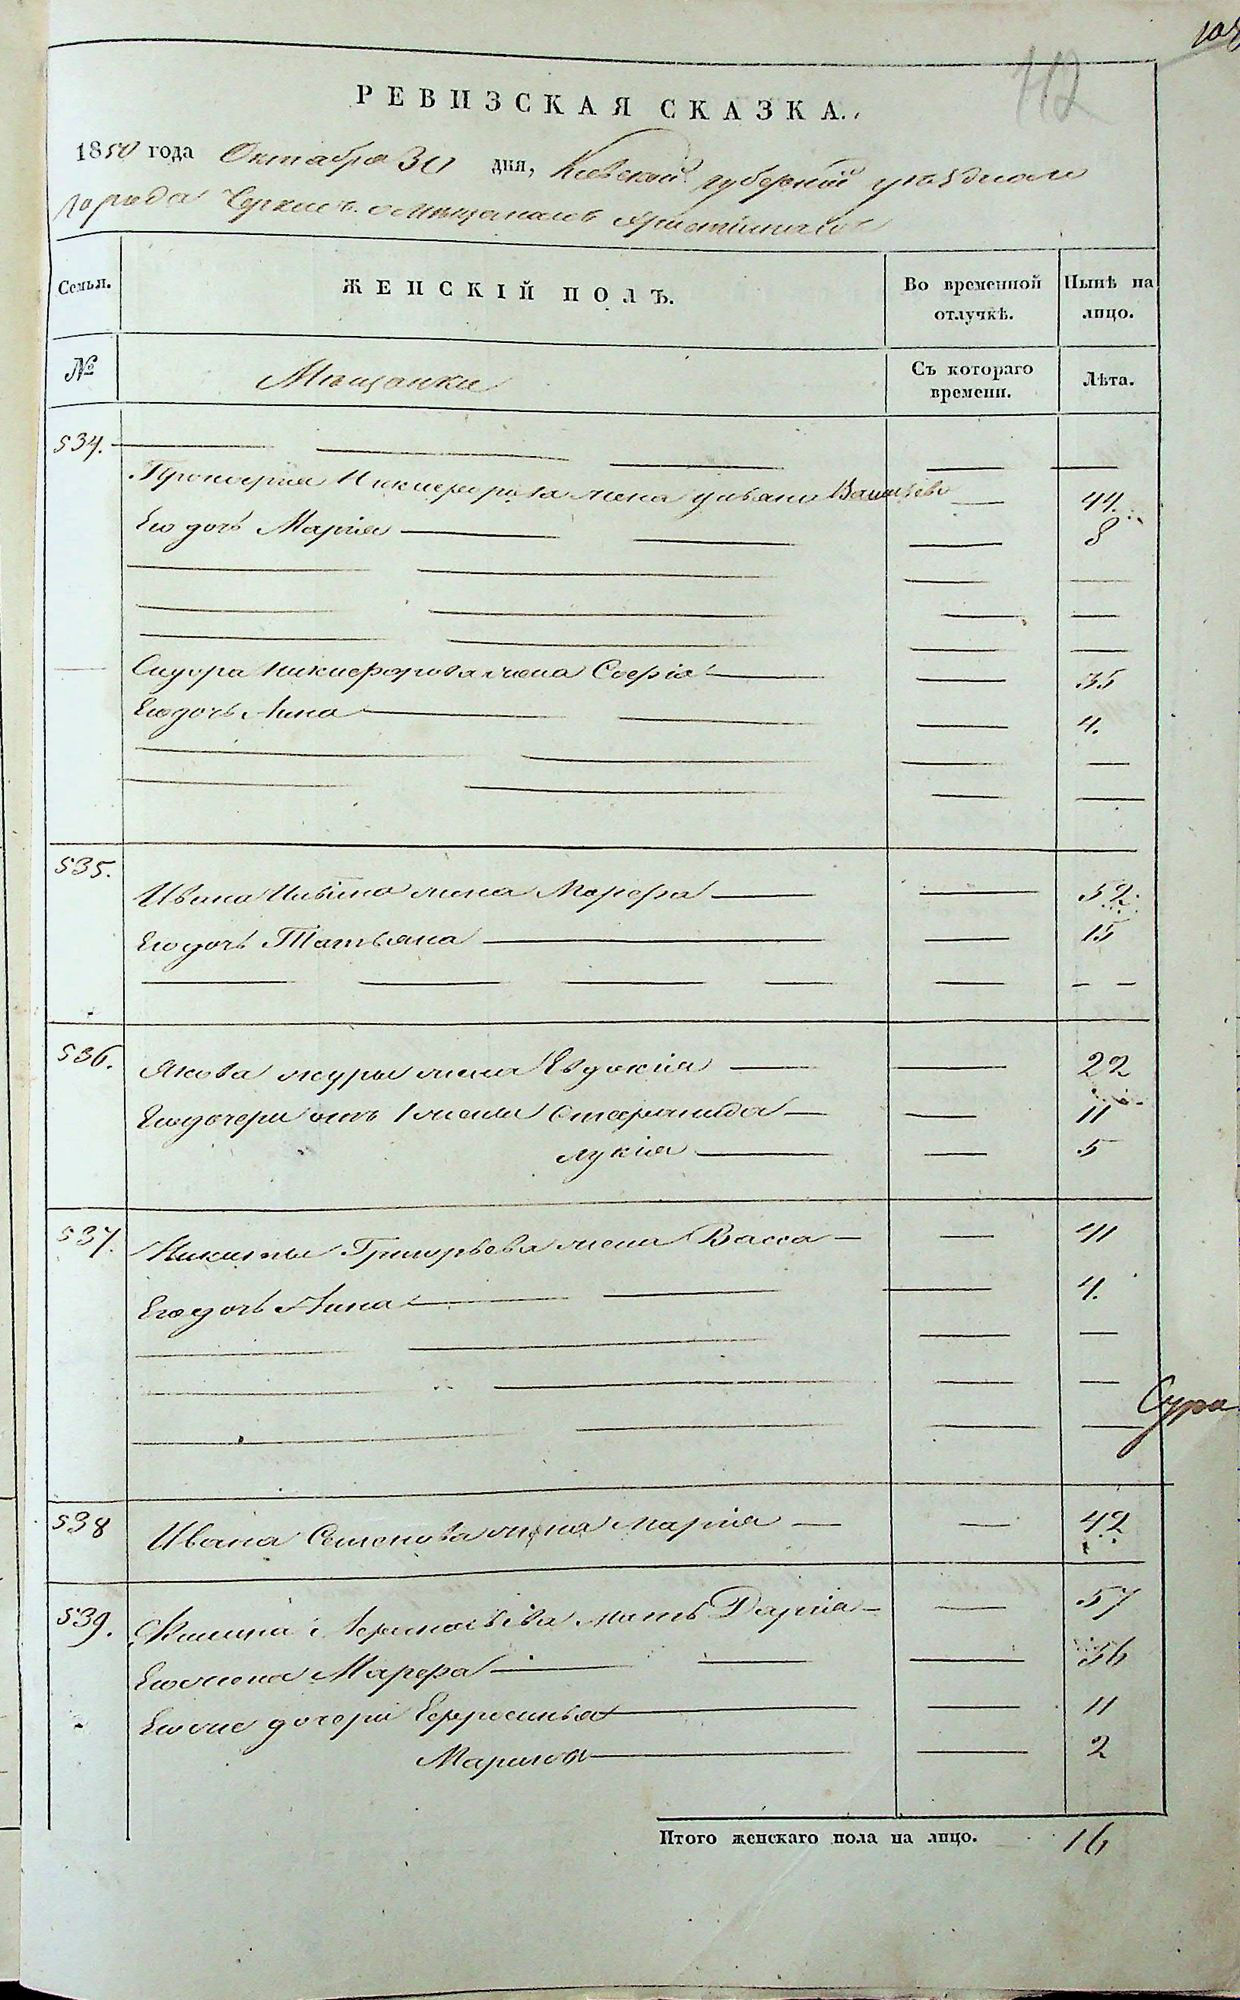 112
РЕВИЗСКАЯ СКАЗКА.
1850 года Октября 30 дня, Киевской губернии уезднаго
города Черкасъ о мещанахъ христианахъ
Семья. ЖЕНСКІЙ ПОЛЪ. Во временной отлучкѣ. Нынѣ на лицо.
№ Мещанки Съ котораго времени. Лѣта.
534.
Никифорова жена Ульяна Васильева 44.
Его дочь Марія 8
Сидора Никифорова жена Софія 35
Его дочь Анна 4.
535.
Ивана жена Марфа 52
Его дочь Татьяна 15
536.
Якова жена Евдокія 22
Его дочери отъ 1 жены 11
Лукія 5
537.
Никиты Григорьева жена Васса 41
Его дочь Анна 4.
Сура
538 Ивана Семенова жена Марія 42
539. мать Дарія 57
Его жена Марфа 36
Его же дочери Ефросинья 11
2
Итого женскаго пола на лицо. 16